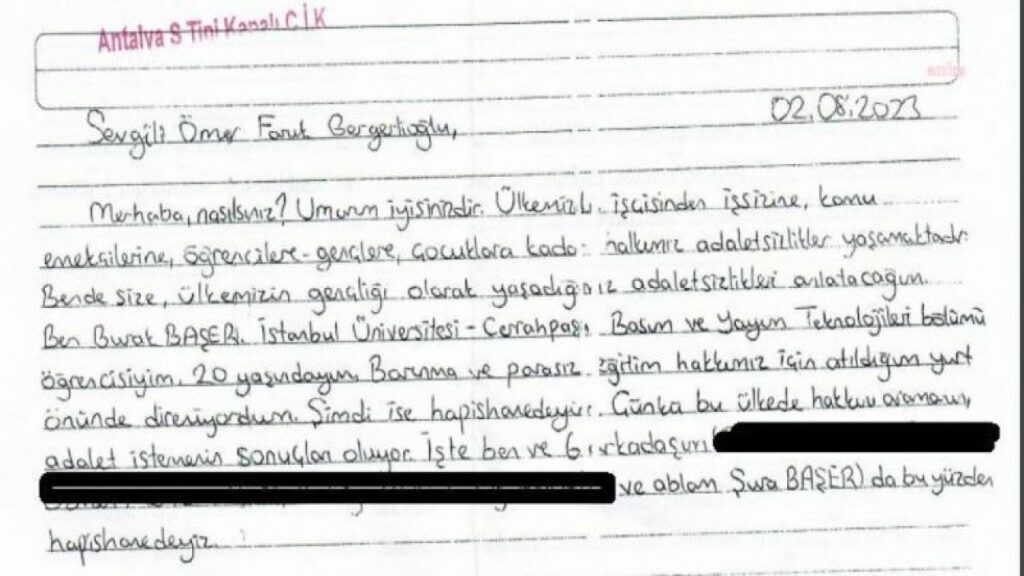 Antalya S Tipi Kapalı C.İ.K
02.08.2023
Sevgili Ömer Faruk Gergerlioğlu,
Merhaba, nasılsınız? Umarım iyisinizdir. Ülkemizde işçisinden işsizine, kamu
emekçilerine, öğrencilere-gençlere, çocuklara kadar halkımız adaletsizlikler yaşamaktadır.
Bende size, ülkemizin gençliği olarak yaşadığımız adaletsizlikleri anlatacağım.
Ben Burak BAŞER. İstanbul Üniversitesi-Cerrahpaşa Basım ve Yayın Teknolojileri bölümü
öğrencisiyim. 20 yaşındayım. Barınma ve parasız eğitim hakkımız için atıldığım yurt
önünde direniyordum. Şimdi ise hapishanedeyim. Çünkü bu ülkede hakkını aramanın,
adalet istemenin sonuçları oluyor. İşte ben ve 6 arkadaşım (
ve ablam Şura BAŞER) da bu yüzden
hapishanedeyiz.